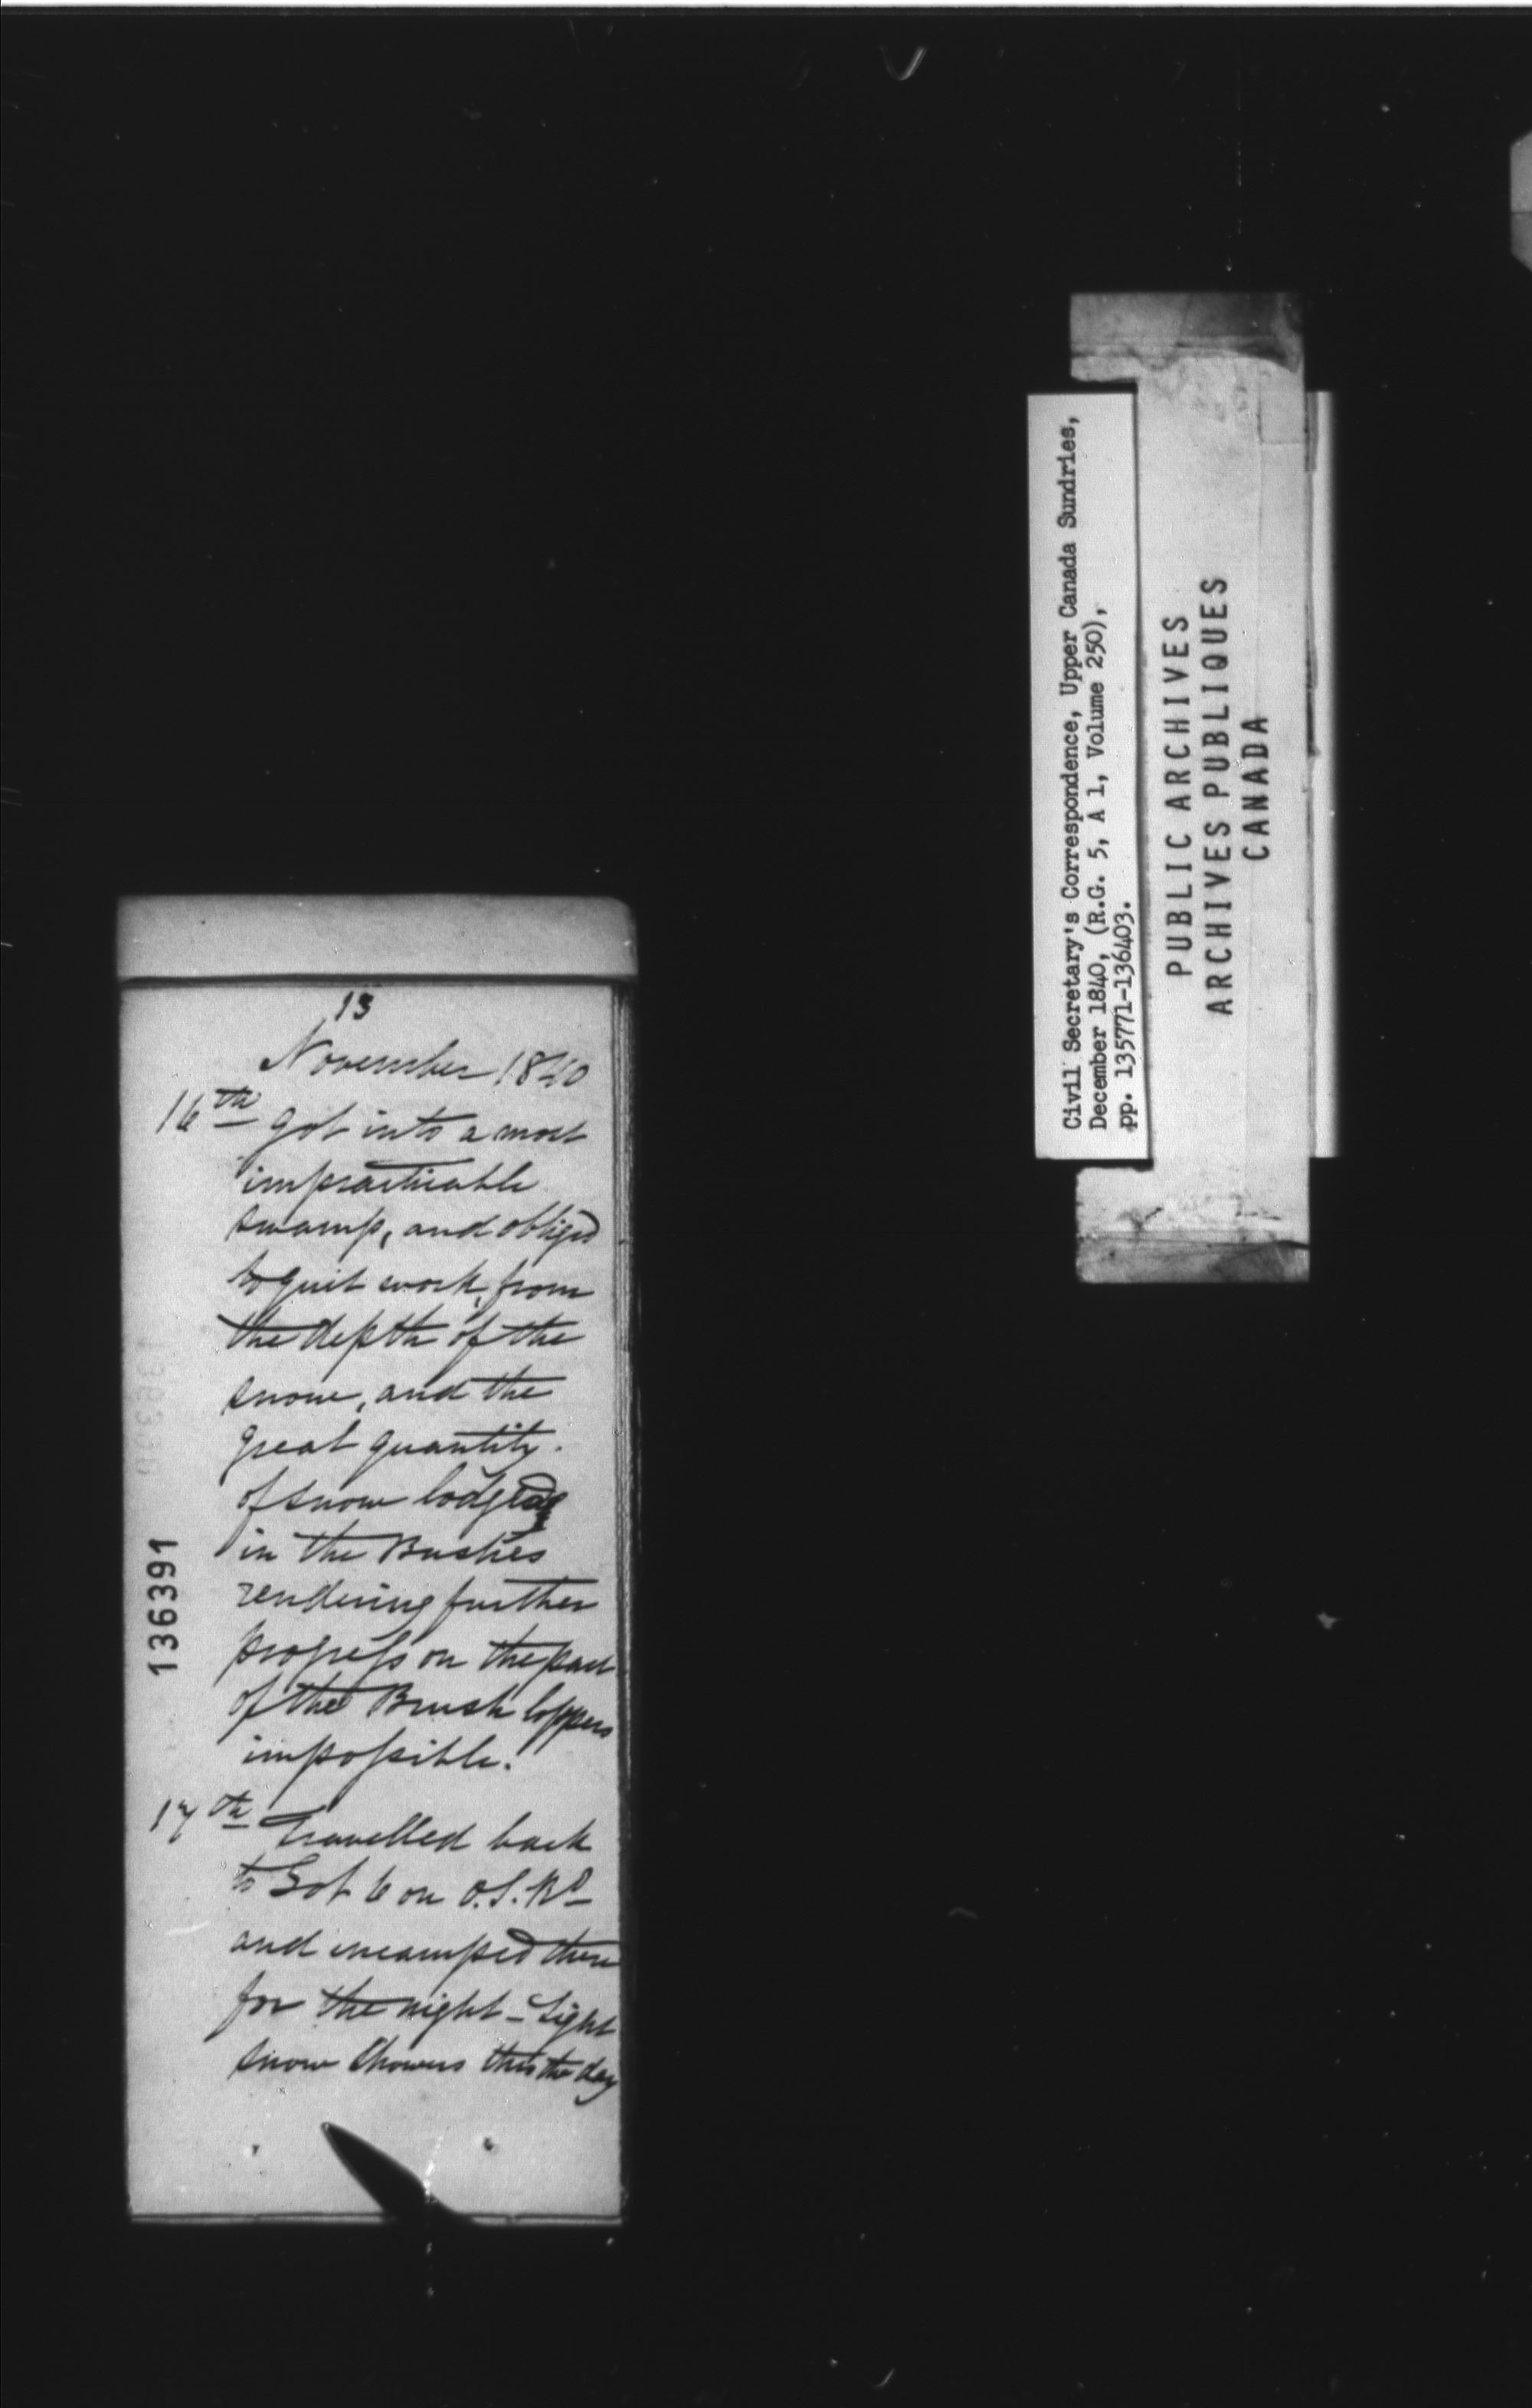 13
November 1840
16th Got into a most
impracticable
swamp, and obliged
to quit work, from
the depth of the
snow, and the
great quantity
of snow lodged
in the Bushes
rendering further
progress on the part
of the Brush loppers
impossible.
17th Travelled back
to Lot 6 on O.S. Rd
and encamped there
for the night - Light
snow showers thro the day
136391
Civil Secretary's Correspondence, Upper Canada Sundries,
December 1840, (R.G. 5, A 1, Volume 250),
pp. 135771-136403.
PUBLIC ARCHIVES
ARCHIVES PUBLIQUES
CANADA